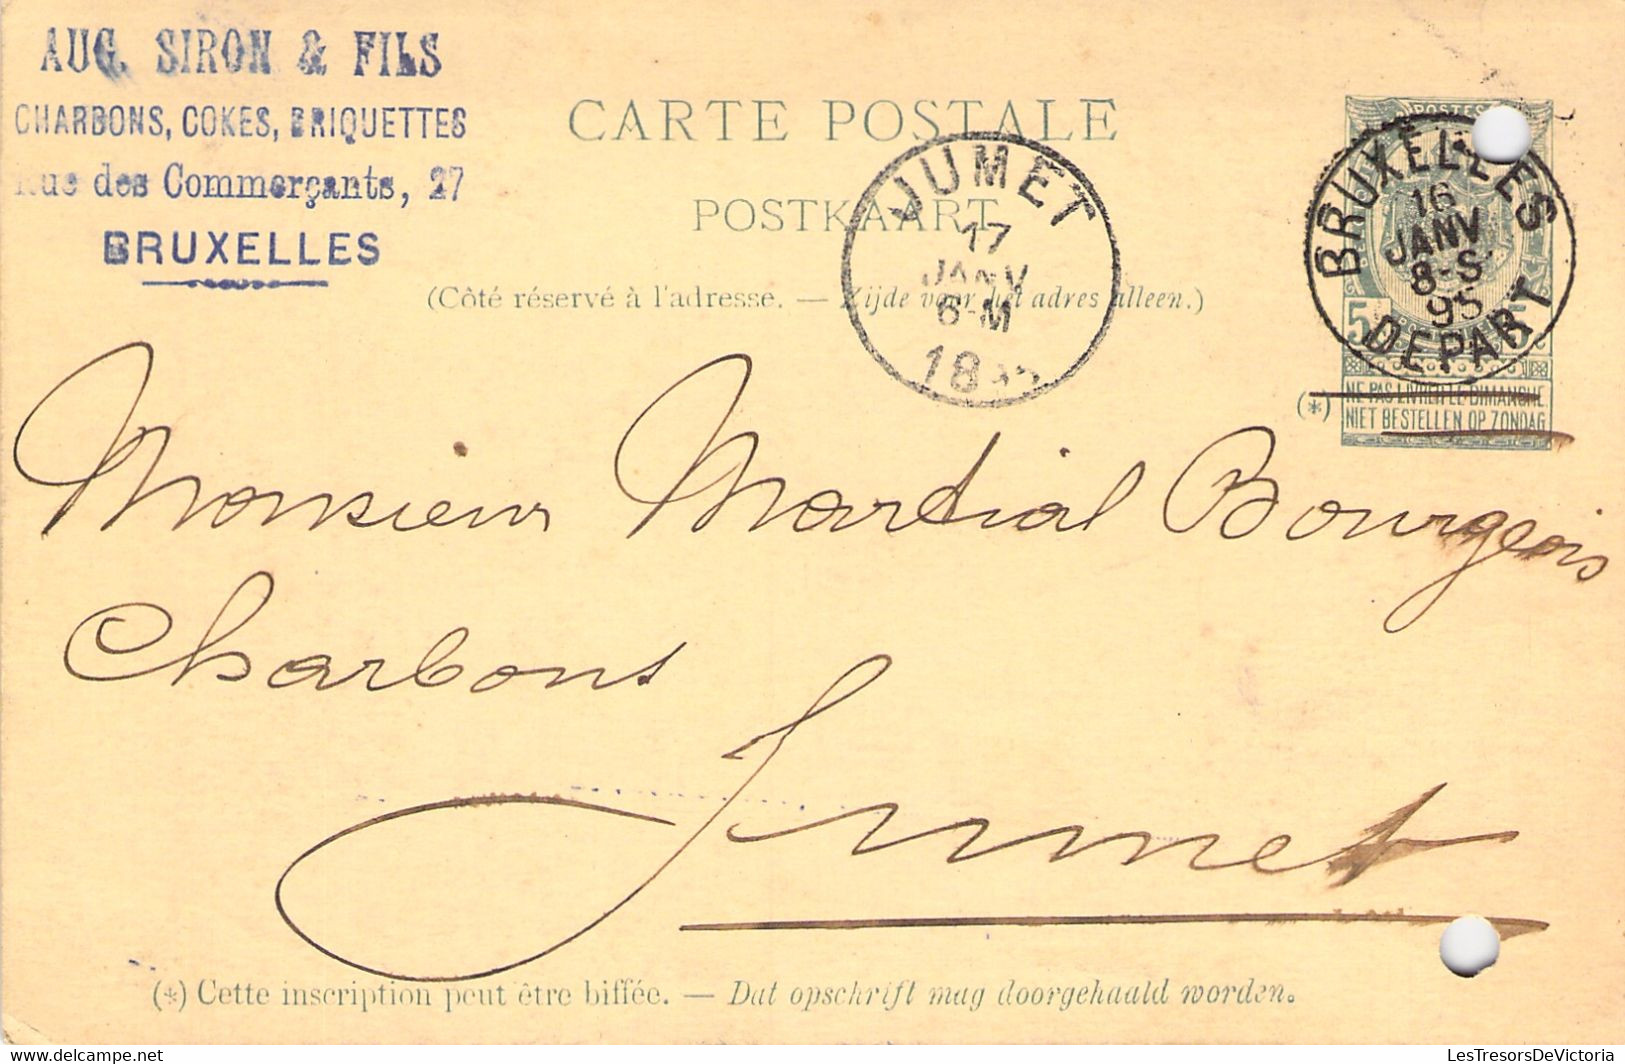 AUG. SIRON & FILS
CHARBONS, COKES, BRIQUETTES
Rue des Commerçants, 27
BRUXELLES
CARTE POSTALE
POSTKAART
(Côté réservé à l'adresse. — Zijde voor het adres alleen.)
JUMET
17
JANV
6-M
1895
POSTES
BRUXELLES
16
JANV
8-S
95
DEPART
5 5
(*) NE PAS LIVRER LE DIMANCHE.
NIET BESTELLEN OP ZONDAG
Monsieur Martial Bourgeois
Charbons
Jumet
(*) Cette inscription peut être biffée. — Dat opschrift mag doorgehaald worden.
LesTresorsDeVictoria - delcampe.net